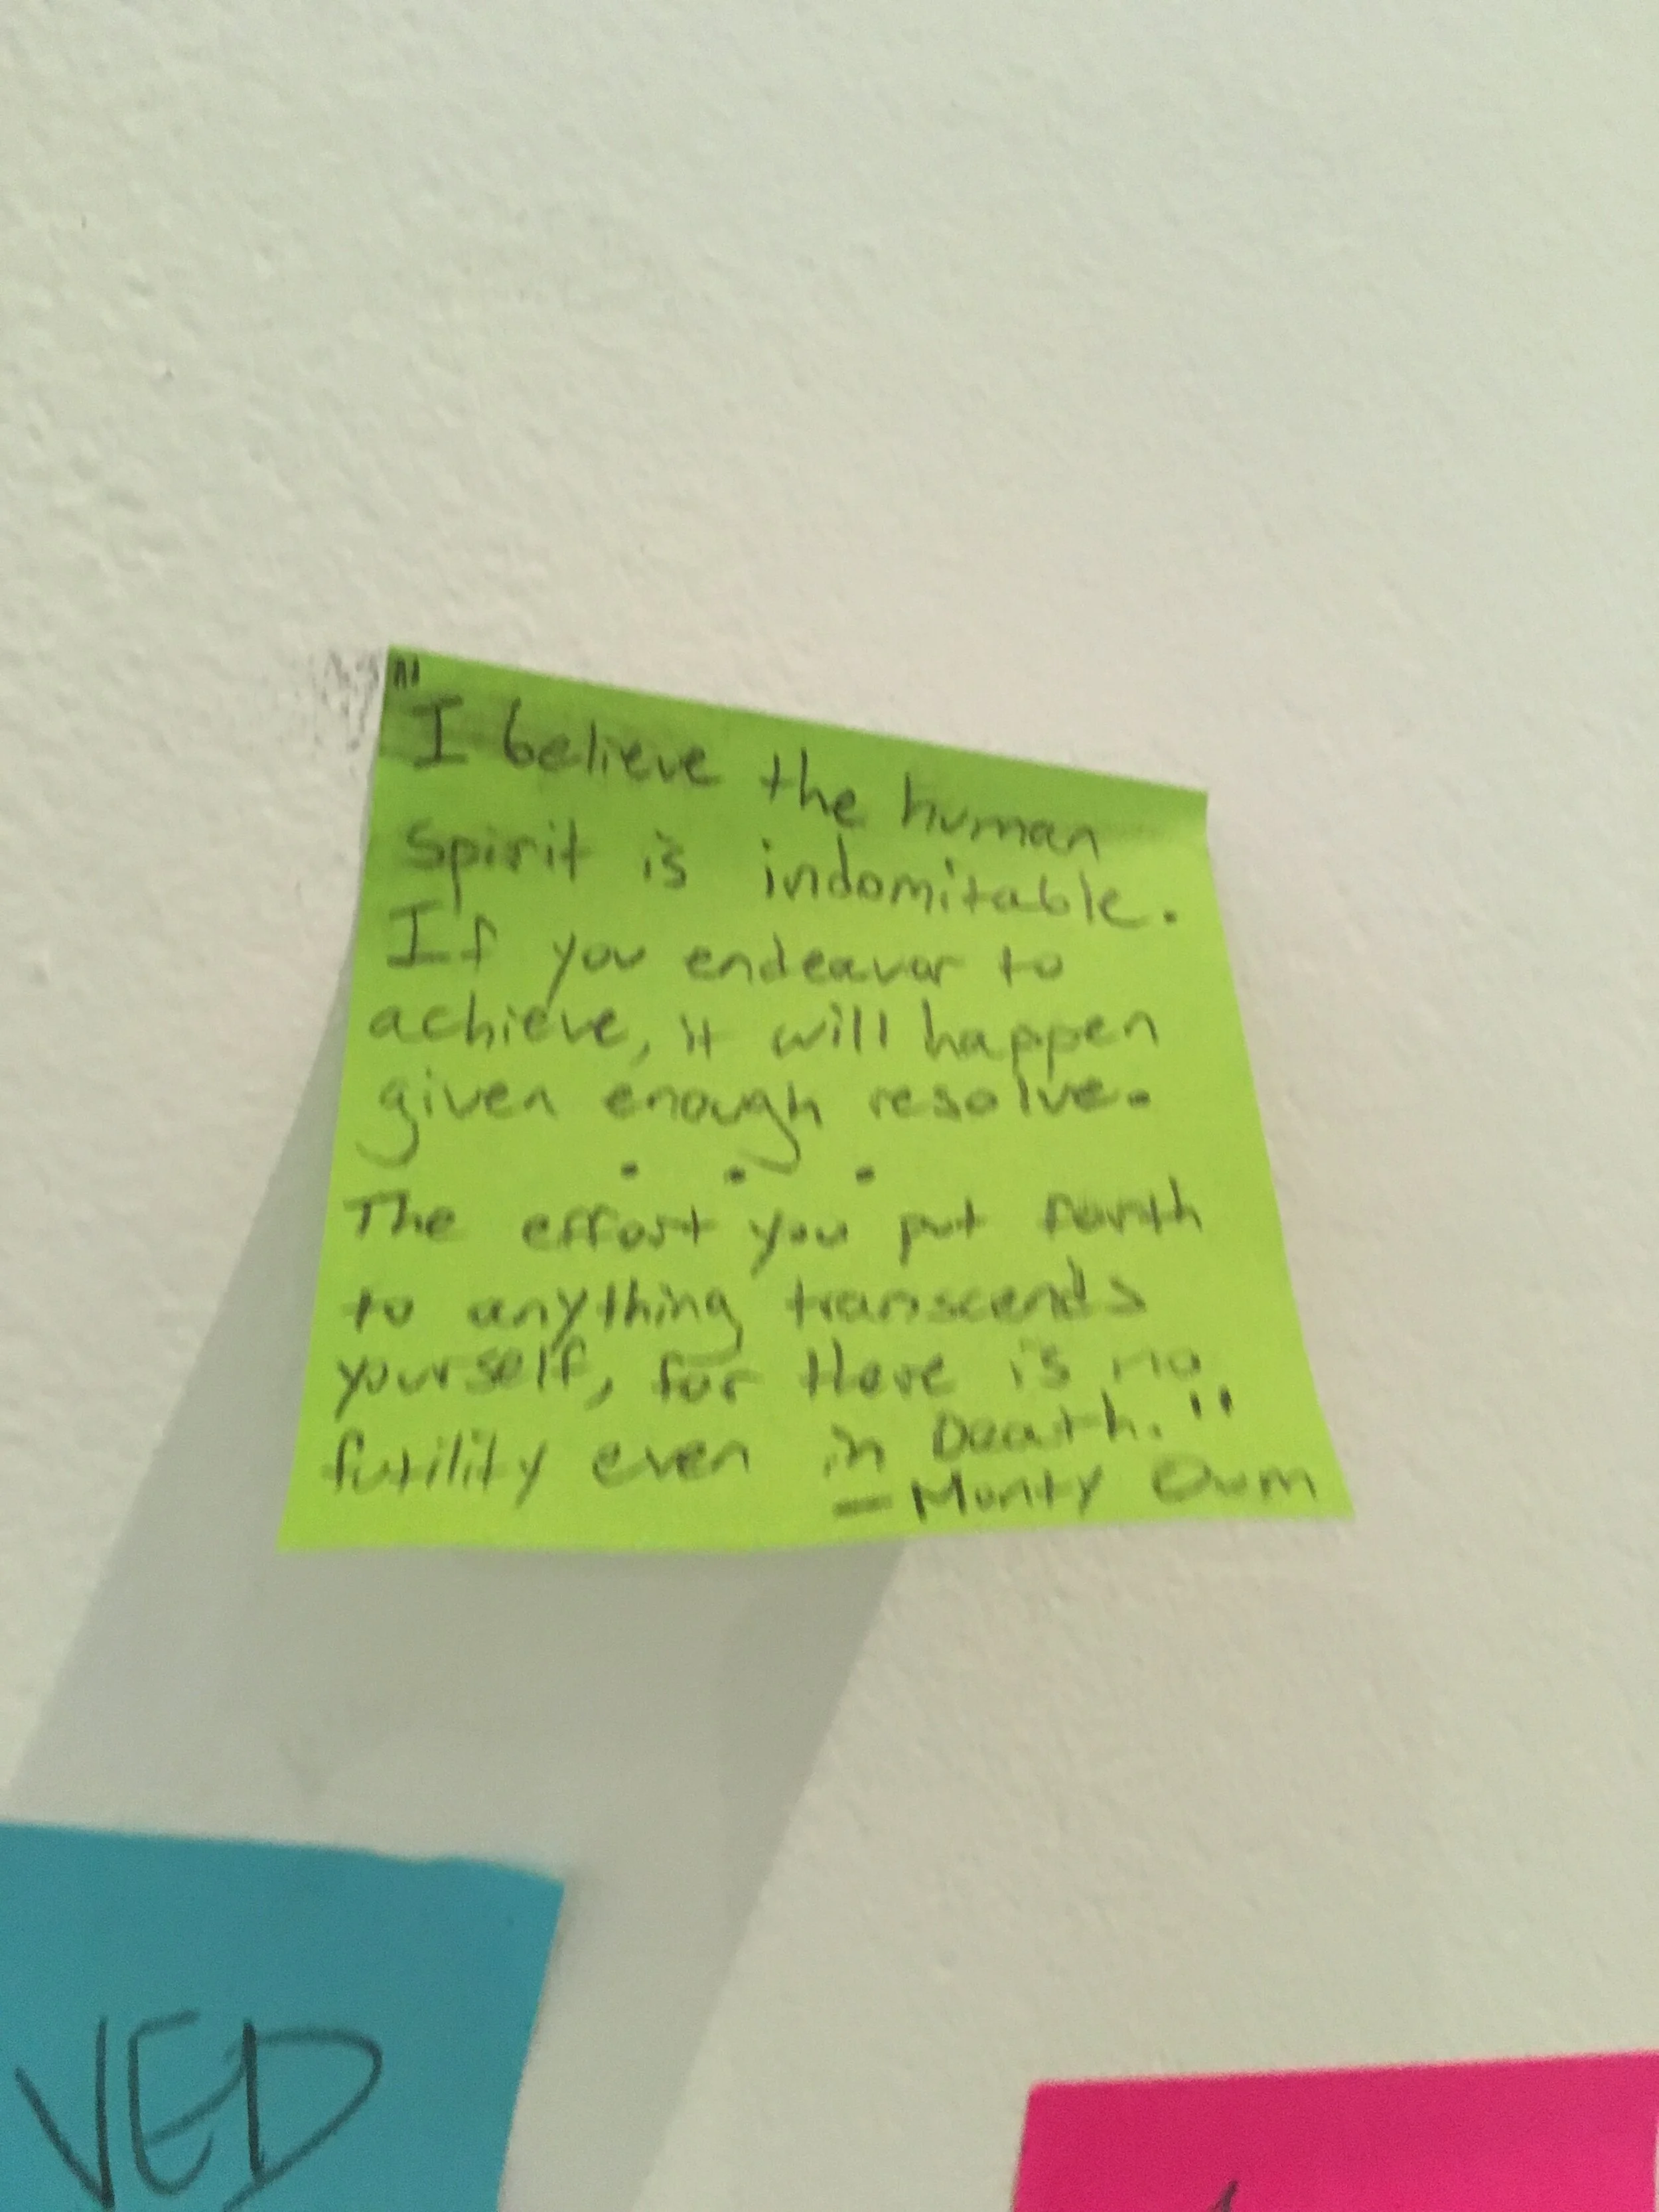 "I believe the human
spirit is indomitable.
If you endeavor to
achieve, it will happen
given enough resolve.
. . .
The effort you put fourth
to anything transcends
yourself, for there is no
futility even in Death."
— Monty Oum
VED